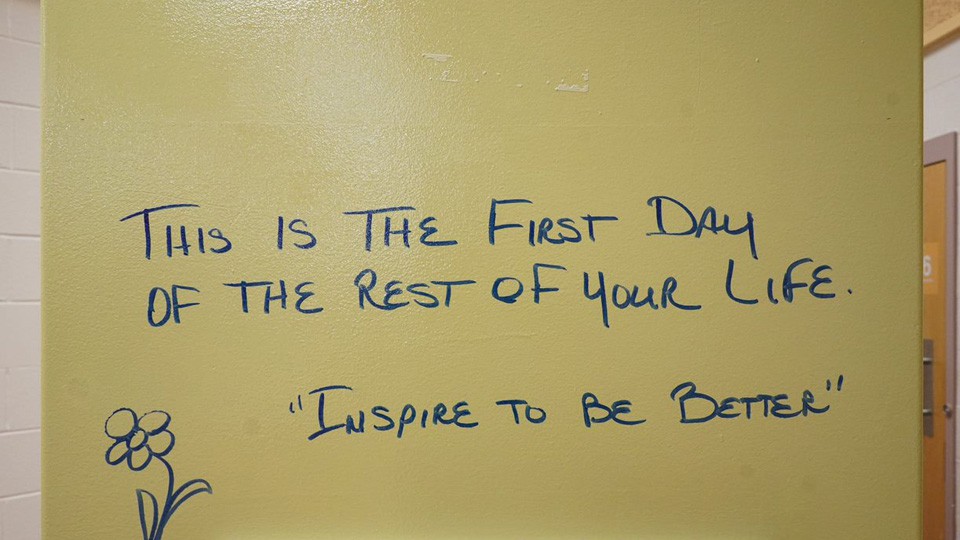 THIS IS THE FIRST DAY
OF THE REST OF YOUR LIFE.
"INSPIRE TO BE BETTER"
6